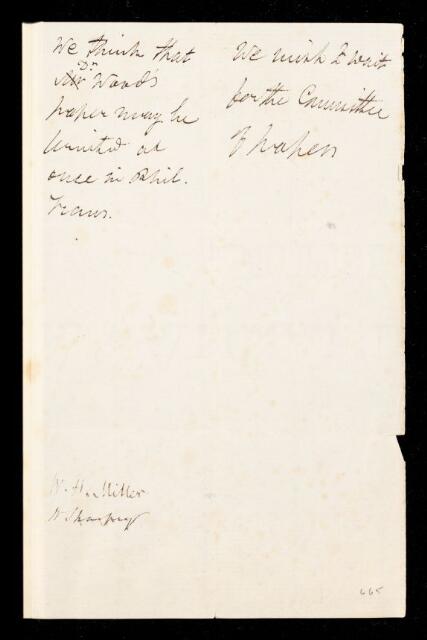 We think that
Dr Wood's
paper may be
printed at
once in Phil.
Trans.
We wish to wait
for the Committee
of papers
W. H. Miller
W Sharpey
665